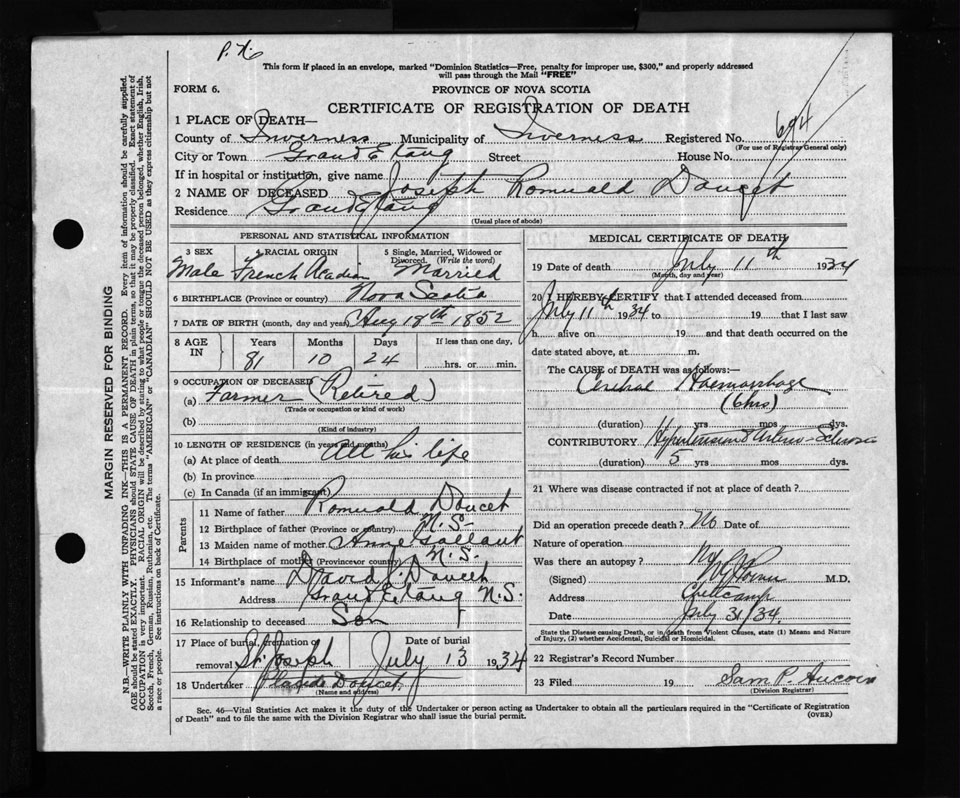 P. N.
This form if placed in an envelope, marked "Dominion Statistics—Free, penalty for improper use, $300," and properly addressed
will pass through the Mail "FREE"
FORM 6. PROVINCE OF NOVA SCOTIA
CERTIFICATE OF REGISTRATION OF DEATH
1 PLACE OF DEATH—
County of Inverness Municipality of Inverness Registered No. 694
(For use of Registrar General only)
City or Town Grand Etang Street House No.
If in hospital or institution, give name
2 NAME OF DECEASED Joseph Romuald Doucet
Residence Grand Etang
(Usual place of abode)
PERSONAL AND STATISTICAL INFORMATION
3 SEX 4 RACIAL ORIGIN 5 Single, Married, Widowed or
Divorced. (Write the word)
Male French Acadian Married
6 BIRTHPLACE (Province or country) Nova Scotia
7 DATE OF BIRTH (month, day and year) Aug 18th 1852
8 AGE IN Years Months Days If less than one day,
81 10 24 hrs. or min.
9 OCCUPATION OF DECEASED
(a) Farmer (Retired)
(Trade or occupation or kind of work)
(b)
(Kind of industry)
10 LENGTH OF RESIDENCE (in years and months)
(a) At place of death All his life
(b) In province
(c) In Canada (if an immigrant)
Parents
11 Name of father Romuald Doucet
12 Birthplace of father (Province or country) N.S.
13 Maiden name of mother Anne Gallant
14 Birthplace of mother (Province or country) N.S.
15 Informant's name David J. Doucet
Address Grand Etang N.S.
16 Relationship to deceased Son
17 Place of burial, cremation Date of burial
removal St. Joseph July 13 1934
18 Undertaker Placide Doucet
(Name and address)
MEDICAL CERTIFICATE OF DEATH
19 Date of death July 11th 1934
(Month, day and year)
20 I HEREBY CERTIFY that I attended deceased from
July 11th 1934 to 19 that I last saw
h alive on 19 and that death occurred on the
date stated above, at m.
The CAUSE of DEATH was as follows:—
Cerebral Haemorrhage
(6hrs)
(duration) yrs mos dys.
CONTRIBUTORY Hypertension & Arterio-Sclerosis
(duration) 5 yrs mos dys.
21 Where was disease contracted if not at place of death?
Did an operation precede death? No Date of
Nature of operation
Was there an autopsy? No
(Signed) M.D.
Address Cheticamp
Date July 31/34.
State the Disease causing Death, or in death from Violent Causes, state (1) Means and Nature
of Injury, (2) whether Accidental, Suicidal or Homicidal.
22 Registrar's Record Number
23 Filed 19 Sam P. Aucoin
(Division Registrar)
Sec. 46—Vital Statistics Act makes it the duty of the Undertaker or person acting as Undertaker to obtain all the particulars required in the "Certificate of Registration
of Death" and to file the same with the Division Registrar who shall issue the burial permit. (OVER)
MARGIN RESERVED FOR BINDING
N.B.—WRITE PLAINLY WITH UNFADING INK—THIS IS A PERMANENT RECORD. Every item of information should be carefully supplied.
AGE should be stated EXACTLY. PHYSICIANS should STATE CAUSE OF DEATH in plain terms, so that it may be properly classified. Exact statement of
OCCUPATION is very important. RACIAL ORIGIN will be described by stating to what people or tongue the deceased person belonged, whether English, Irish,
Scotch, French, German, Russian, Ruthenian, etc. The terms "AMERICAN" or "CANADIAN" SHOULD NOT BE USED as they express citizenship but not
a race or people. See instructions on back of Certificate.